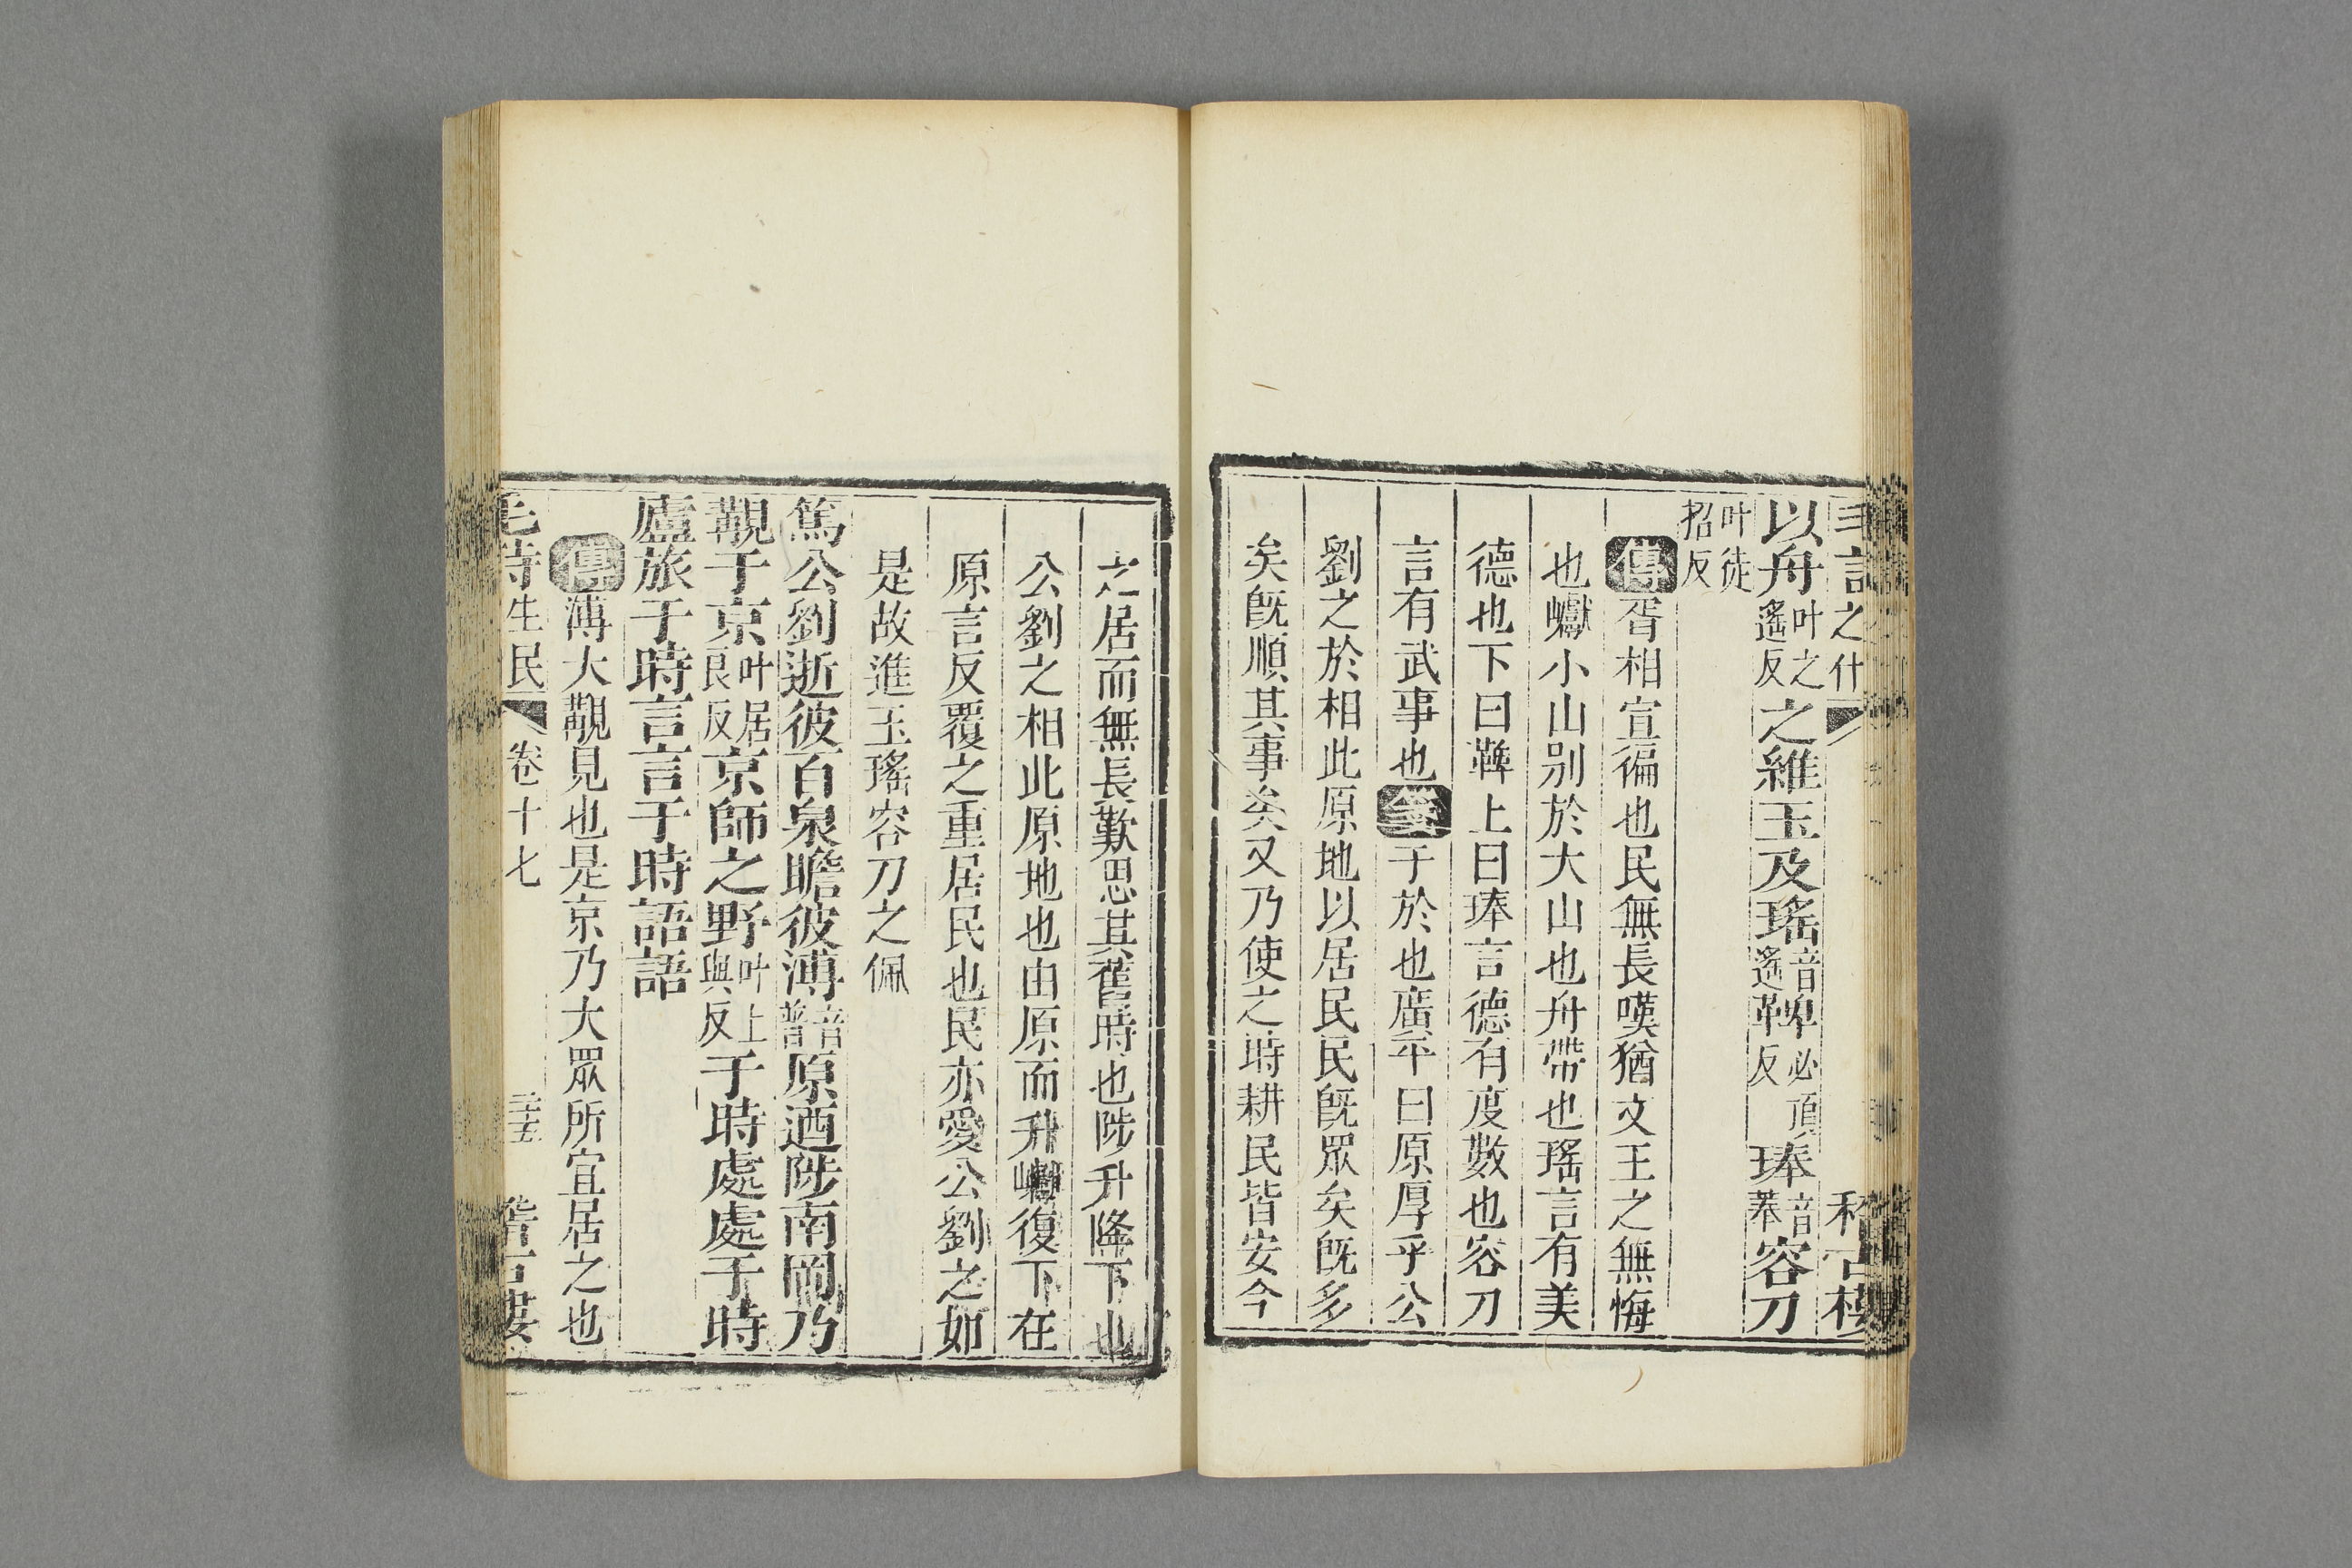 之什
以舟叶之遙反之維玉及瑤音遙鞞必頂反琫音菶容刀
叶徒招反
傳胥相宣徧也民無長嘆猶文王之無悔
也巘小山别於大山也舟帶也瑤言有美
德也下曰鞞上曰琫言德有度數也容刀
言有武事也箋于於也廣平曰原厚乎公
劉之於相此原地以居民民旣眾矣旣多
矣旣順其事矣又乃使之時耕民皆安今
之居而無長歎思其舊時也陟升降下也
公劉之相此原地也由原而升巘復下在
原言反覆之重居民也民亦愛公劉之如
是故進玉瑤容刀之佩
篤公劉逝彼百泉瞻彼溥音普原迺陟南岡乃
覯于京叶居良反京師之野叶上與反于時處處于時
廬旅于時言言于時語語
傳溥大覯見也是京乃大眾所宜居之也
毛詩生民 卷十七